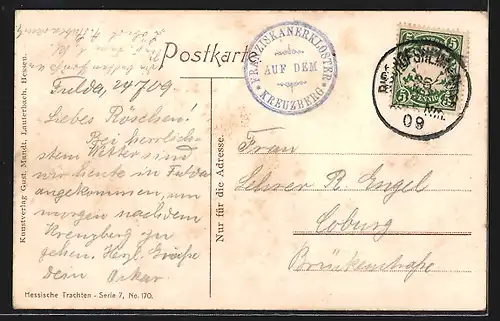 Postkarte
FRANZISKANERKLOSTER
AUF DEM
KREUZBERG
BISCHOFSHEIM
09
5
5
PFENNIG
Fulda, 24/7 09.
Liebes Röschen!
Bei herrlich-
stem Wetter sind
wir heute in Fulda
angekommen, um
morgen nach dem
Kreuzberg zu
gehen. Herzl. Grüße
Dein Oskar
Nur für die Adresse.
Frau
Lehrer R. Engel
Coburg
Brückenstraße
Kunstverlag Gust. Mandt, Lauterbach, Hessen.
Hessische Trachten - Serie 7, No. 170.